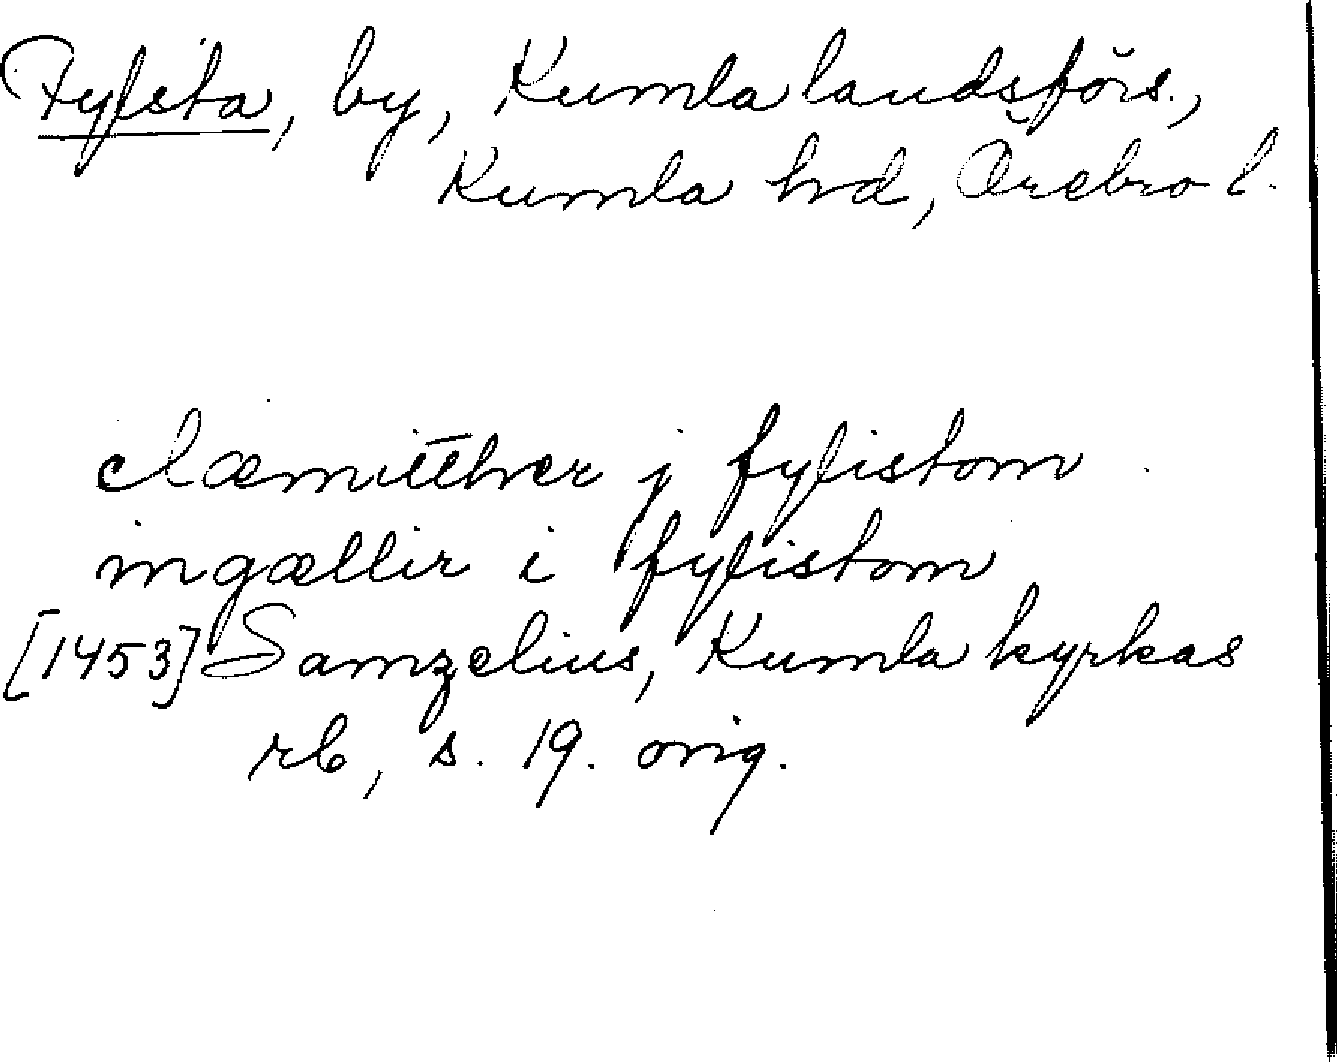 Fylsta, by, Kumla landsförs.,
Kumla hrd, Örebro l.
clæmitther j fylistom
ingællir i fylistom
[1453] Samzelius, Kumla kyrkas
rb, s. 19. orig.